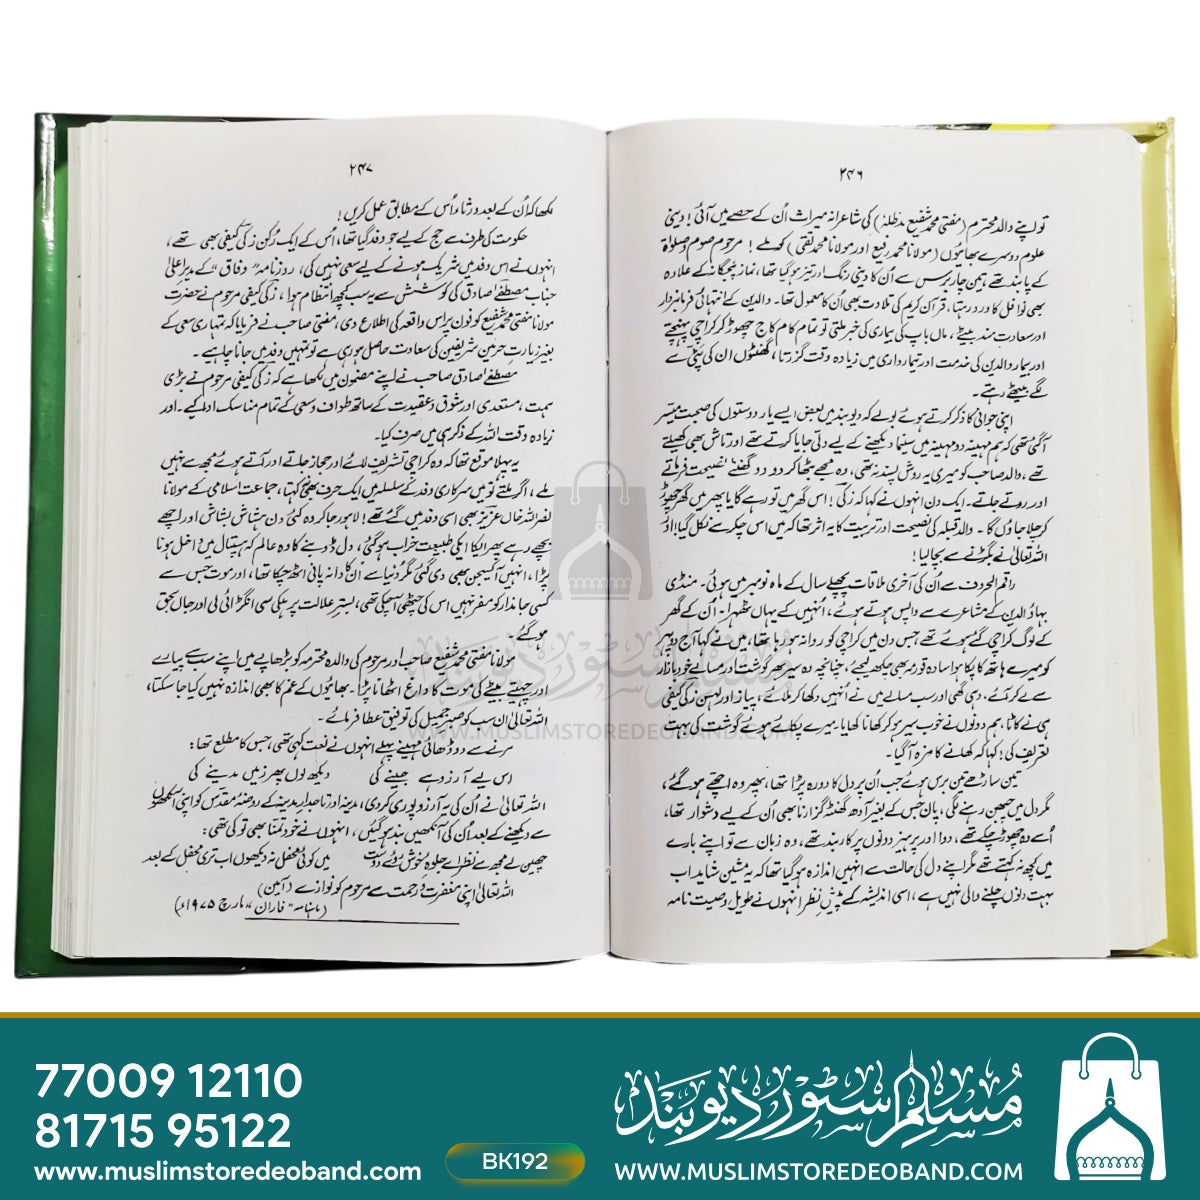 ۲۴۶
تو اپنے والد محترم (مفتی محمد شفیع مدظلہٗ) کی شاعرانہ میراث اُن کے حصے میں آئی! دینی
علوم دوسرے بھائیوں (مولانا محمد رفیع اور مولانا محمد تقی) کو ملے! مرحوم صوم و صلوٰۃ
کے پابند تھے ہمین چار برس سے اُن کا دینی رنگ اور تیز ہوگیا تھا، نماز پنجگانہ کے علاوہ
بھی نوافل کا ورد رہتا، قرآن کریم کی تلاوت بھی اُن کا معمول تھا۔ والدین کے انتہائی فرمانبردار
اور سعادت مند بیٹے، ماں باپ کی بیماری کی خبر ملتی تو تمام کام کاج چھوڑ کر کراچی پہنچتے
اور بیمار والدین کی خدمت اور تیمارداری میں زیادہ وقت گزرتا، گھنٹوں ان کی پٹی سے
لگے بیٹھے رہتے۔
اپنی جوانی کا ذکر کرتے ہوئے بولے کہ دیوبند میں بعض ایسے یار دوستوں کی صحبت میسّر
آگئی تھی کہ ہم مہینہ دو مہینہ میں سنیما دیکھنے کے لیے دلی جایا کرتے تھے اور تاش بھی کھیلتے
تھے، والد صاحب کو میری یہ روش پسند نہ تھی، وہ مجھے بٹھا کر دو دو گھنٹے نصیحت فرماتے
اور روتے جاتے۔ ایک دن انہوں نے کہا کہ زکی! اس گھر میں تو رہے گا یا پھر میں گھر چھوڑ
کر چلا جاؤں گا۔ والد قبلہ کی نصیحت اور تربیت کا یہ اثر تھا کہ میں اس چکر سے نکل گیا! اور
اللہ تعالیٰ نے بگڑنے سے بچا لیا!
راقم الحروف سے اُن کی آخری ملاقات پچھلے سال کے ماہ نومبر میں ہوئی۔ منڈی
بہاؤ الدین کے مشاعرے سے واپس ہوتے ہوئے، اُنہیں کے یہاں ٹھہرا۔ اُن کے گھر
کے لوگ کراچی گئے ہوئے تھے جس دن میں کراچی کو روانہ ہو رہا تھا، میں نے کہا آج دوپہر
کو میرے ہاتھ کا پکا ہوا سادہ قورمہ بھی چکھ لیجئے، چنانچہ وہ سیر بھر گوشت اور مسالے خود بازار
سے لے کر آئے، دہی گھی اور سب مسالے میں نے اُنہیں دکھا کر ملائے، پیاز اور لہسن زکی کیفی
ہی نے کاٹا، ہم دونوں نے خوب سیر ہو کر کھانا کھایا، میرے پکائے ہوئے گوشت کی بہت
تعریف کی! کہا کہ کھانے کا مزہ آگیا۔
تین ساڑھے تین برس ہوئے جب اُن پر دل کا دورہ پڑا تھا، پھر وہ اچھے ہو گئے،
مگر دل میں چبھن رہنے لگی، پان جس کے بغیر آدھ گھنٹہ گزارنا بھی اُن کے لیے دشوار تھا،
اُسے وہ چھوڑ چکے تھے، دوا اور پرہیز دونوں پر کاربند تھے، وہ زبان سے تو اپنے بارے
میں کچھ نہ کہتے تھے مگر اپنے دل کی حالت سے انہیں اندازہ ہوگیا تھا کہ یہ مشین شاید اب
بہت دنوں چلنے والی نہیں ہے، اسی اندیشہ کے پیش نظر انہوں نے طویل وصیت نامہ
۲۴۷
لکھا کہ اُن کے بعد ورثاء اُس کے مطابق عمل کریں!
حکومت کی طرف سے حج کے لیے جو وفد گیا تھا، اُس کے ایک رُکن زکی کیفی بھی تھے،
انہوں نے اس وفد میں شریک ہونے کے لیے سعی نہیں کی، روزنامہ "وفاق" کے مدیر اعلیٰ
جناب مصطفےٰ صادق کی کوشش سے یہ سب کچھ انتظام ہوا، زکی کیفی مرحوم نے حضرت
مولانا مفتی محمد شفیع کو فون پر اس واقعہ کی اطلاع دی، مفتی صاحب نے فرمایا کہ تمہاری سعی کے
بغیر زیارت حرمین شریفین کی سعادت حاصل ہو رہی ہے تو تمہیں وفد میں جانا چاہیے۔
مصطفےٰ صادق صاحب نے اپنے مضمون میں لکھا ہے کہ زکی کیفی مرحوم نے بڑی
ہمت، مستعدی اور شوق و عقیدت کے ساتھ طواف و سعی کے تمام مناسک ادا کیے۔ اور
زیادہ وقت اللہ کے ذکر ہی میں صرف کیا۔
یہ پہلا موقع تھا کہ وہ کراچی تشریف لائے اور حجاز جاتے اور آتے ہوئے مجھ سے نہیں
ملے، اگر ملتے تو میں سرکاری وفد کے سلسلہ میں ایک حرف بھی نہ کہتا، جماعت اسلامی کے مولانا
نصر اللہ خاں عزیز بھی اسی وفد میں گئے تھے! لاہور جا کر وہ کئی دن ہشاش بشاش اور اچھے
بچھے رہے پھر ایکا ایکی طبیعت خراب ہو گئی، دل ڈوبنے کا وہ عالم کہ ہسپتال میں داخل ہونا
پڑا، انہیں آکسیجن بھی دی گئی مگر دنیا سے اُن کا دانہ پانی اٹھ چکا تھا، اور موت جس سے
کسی جاندار کو مفر نہیں اس کی گھنٹی بج چکی تھی، بستر علالت پر ہلکی سی انگڑائی لی اور جاں بحق
ہو گئے۔
مولانا مفتی محمد شفیع صاحب اور مرحوم کی والدہ محترمہ کو بڑھاپے میں اپنے سب سے پیارے
اور چہیتے بیٹے کی موت کا داغ اٹھانا پڑا۔ بھائیوں کے غم کا بھی اندازہ نہیں کیا جا سکتا،
اللہ تعالیٰ ان سب کو صبر جمیل کی توفیق عطا فرمائے۔
مرنے سے دو ڈھائی مہینے پہلے انہوں نے نعت کہی تھی، جس کا مطلع تھا:
اس لیے آرزو ہے جینے کی دیکھ لوں پھر زمیں مدینے کی
اللہ تعالیٰ نے اُن کی یہ آرزو پوری کر دی، مدینہ اور تاجدار مدینہ کے روضۂ مقدس کو اپنی آنکھوں
سے دیکھنے کے بعد اُن کی آنکھیں بند ہو گئیں، انہوں نے خود تمنّا بھی تو کی تھی:
چھین لے مجھ سے نظر اے جلوۂ خوش روئے دوست میں کوئی محفل نہ دیکھوں اب تری محفل کے بعد
اللہ تعالیٰ اپنی مغفرت و رحمت سے مرحوم کو نوازے (آمین)
(ماہنامہ "فاران" مارچ ۱۹۷۵ء)
مسلم سٹور دیوبند
WWW.MUSLIMSTOREDEOBAND.COM
77009 12110
81715 95122
www.muslimstoredeoband.com
BK192
مسلم سٹور دیوبند
WWW.MUSLIMSTOREDEOBAND.COM